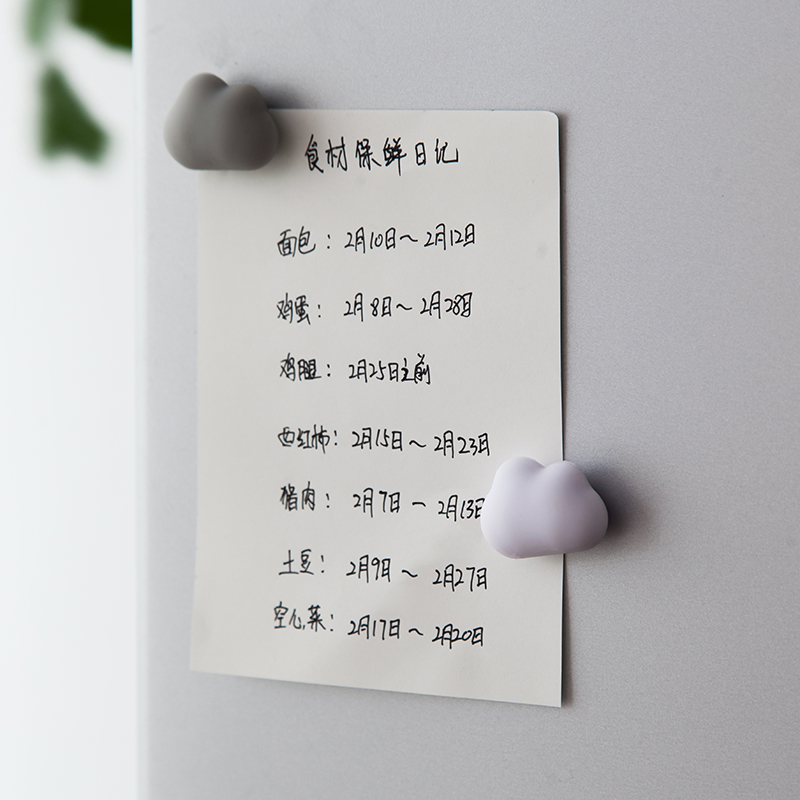 食材保鲜日记
面包：2月10日～2月12日
鸡蛋：2月8日～2月28日
鸡腿：2月25日之前
西红柿：2月15日～2月23日
猪肉：2月7日－2月13日
土豆：2月9日～2月27日
空心菜：2月17日～2月20日